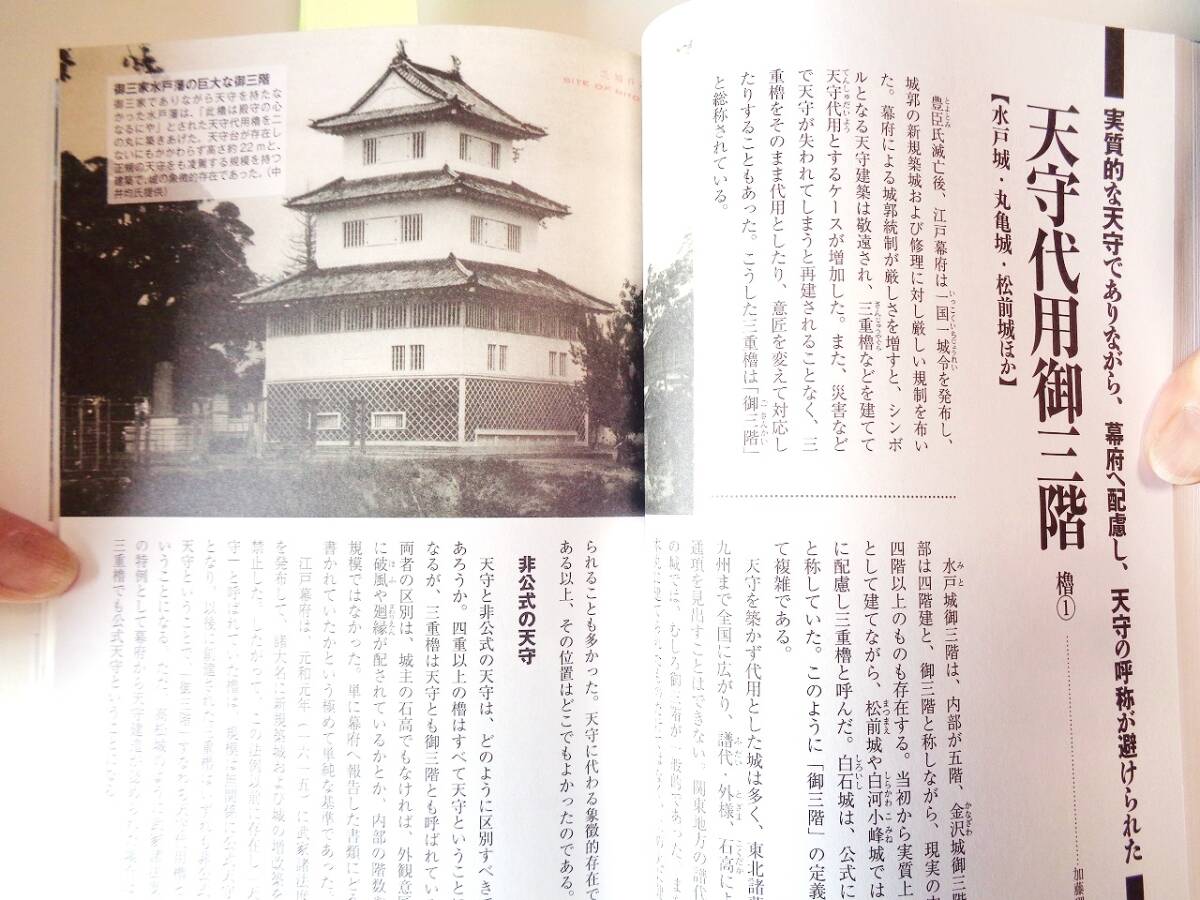 実質的な天守でありながら、幕府へ配慮し、天守の呼称が避けられた
天守代用御三階
櫓①
【水戸城・丸亀城・松前城ほか】
豊臣氏滅亡後、江戸幕府は一国一城令を発布し、
城郭の新規築城および修理に対し厳しい規制を布い
た。幕府による城郭統制が厳しさを増すと、シンボ
ルとなる天守建築は敬遠され、三重櫓などを建てて
天守代用とするケースが増加した。また、災害など
で天守が失われてしまうと再建されることなく、三
重櫓をそのまま代用としたり、意匠を変えて対応し
たりすることもあった。こうした三重櫓は「御三階」
と総称されている。
水戸城御三階は、内部が五階、金沢城御三階
部は四階建と、御三階と称しながら、現実の
四階以上のものも存在する。当初から実質上
として建てながら、松前城や白河小峰城では
に配慮し三重櫓と呼んだ。白石城は、公式に
と称していた。このように「御三階」の定義
て複雑である。
天守を築かず代用とした城は多く、東北諸藩
九州まで全国に広がり、譜代・外様、石高によ
通項を見出すことはできない。関東地方の譜代
の城では、むしろ御三階が一般的であった。また
御三家水戸藩の巨大な御三階
御三家でありながら天守を持たな
かった水戸藩は、「此櫓は殿守の心
なるにや」とされた天守代用櫓を二
の丸に築きあげた。天守台が存在し
ないにもかかわらず高さ約22mと、
正規の天守をも凌駕する規模を持つ
建築で、城の象徴的存在であった。(中
井均氏提供)
SITE OF
られることも多かった。天守に代わる象徴的存在で
ある以上、その位置はどこでもよかったのである。
非公式の天守
天守と非公式の天守は、どのように区別すべきで
あろうか。四重以上の櫓はすべて天守ということに
なるが、三重櫓は天守とも御三階とも呼ばれてい
両者の区別は、城主の石高でもなければ、外観意匠
に破風や廻縁が配されているかとか、内部の階数
規模ではなかった。単に幕府へ報告した書類にど
書かれていたかという極めて単純な基準であった。
江戸幕府は、元和元年(一六一五)に武家諸法度
を発布して、諸大名に新規築城および城の増改築を
禁止した。
三重櫓でも公式天守という